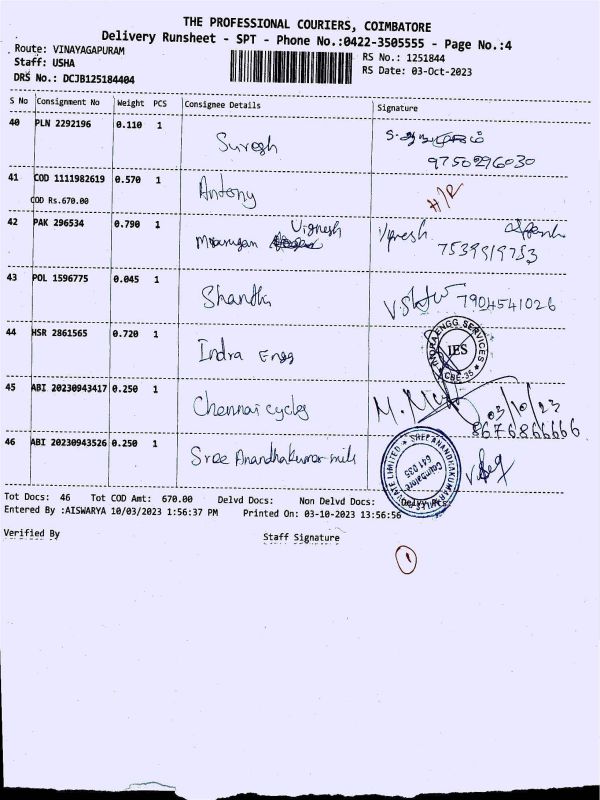 THE PROFESSIONAL COURIERS, COIMBATORE
Delivery Runsheet - SPT - Phone No.:0422-3505555 - Page No.:4
Route: VINAYAGAPURAM
Staff: USHA
DRS No.: DCJB125184404
RS No.: 1251844
RS Date: 03-Oct-2023
S No Consignment No Weight PCS Consignee Details Signature
40 PLN 2292196 0.110 1 Suresh
9750296030
41 COD 1111982619 0.570 1 Antony H/R
COD Rs.670.00
42 PAK 296534 0.790 1 Murugan Vignesh Vignesh
7539919753
43 POL 1596775 0.045 1 Shanthi 7904541026
44 HSR 2861565 0.720 1 Indra Engg
INDRA ENGG SERVICES
IES
CBE-35
45 ABI 20230943417 0.250 1 Chennai cycles
03/10/23
8676866666
46 ABI 20230943526 0.250 1 Sree Anandhakumar mills
SREE ANANDHAKUMAR MILLS PRIVATE LIMITED
Coimbatore
641 035
Tot Docs: 46 Tot COD Amt: 670.00 Delvd Docs: Non Delvd Docs:
Entered By :AISWARYA 10/03/2023 1:56:37 PM Printed On: 03-10-2023 13:56:56
Verified By
Staff Signature
1